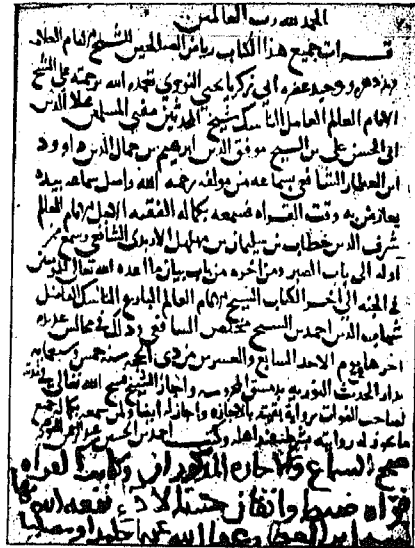 الحمد لله رب العالمين
قرات جميع هذا الكتاب رياض الصالحين للشيخ الامام العلامة
ووحيد عصره ابي زكريا يحيى النووي تغمده الله برحمته على الشيخ
الامام العالم العامل الناسك شيخ المحدثين مفتي المسلمين علا الدين
ابي الحسن علي بن الشيخ موفق الدين ابرهيم بن جمال الدين داوود
ابن العطار الشافعي بسماعه من مولفه رحمه الله واصل سماعه بيده
يعارض به وقت القراه فسمعه بكماله الفقيه الامام العالم
شرف الدين خطاب بن سليمان بن مهلهل الاربدي الشافعي وسمع من
اوله الى باب الصبر ومن اخره من باب بيان ما اعده الله تعالى للمومنين
في الجنه الى اخر الكتاب الشيخ الامام العالم البارع الناسك الفاضل
شهاب الدين احمد بن الشيخ الشافعي وذلك في مجالس
اخرها يوم الاحد السابع والعشرين من ذي الحجه سنه خمس وسبعمايه
بدار الحديث النوريه بدمشق المحروسه واجاز الشيخ فسح الله تعالى
لصاحب الفوات روايه بقيته بالاجازه واجاز له ايضا ولمن سمعه بكماله جميع
ما يجوز له روايته بشرطه عند اهله وكتب احمد بن الحسين
صح السماع والاجازه المذكوران وكانت القراه
قراه ضبط واتقان نفعه الله